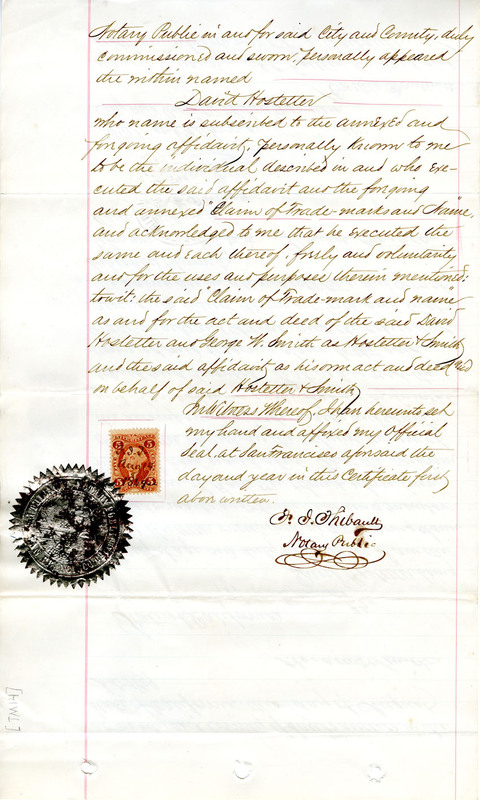 Notary Public in and for said City and County, duly
commissioned and sworn, personally appeared
the within named
David Hostetter
who name is subscribed to the annexed and
forgoing affidavit, personally known to me
to be the individual described in and who exe-
cuted the said affidavit and the forgoing
and annexed "Claim of Trade-marks and Name",
and acknowledged to me that he executed the
same and each thereof, freely and voluntarily
and for the uses and purposes therein mentioned:
to wit: the said "Claim of Trade-mark and name"
as and for the act and deed of the said David
Hostetter and George W. Smith as Hostetter & Smith
and the said affidavit as his own act and deed and
on behalf of said Hostetter & Smith
In Witness Whereof, I have hereunto set
my hand and affixed my Official
Seal at San Francisco aforesaid the
day and year in this Certificate first
above written.
F. J. Thibault
Notary Public
5 5
[HWT]